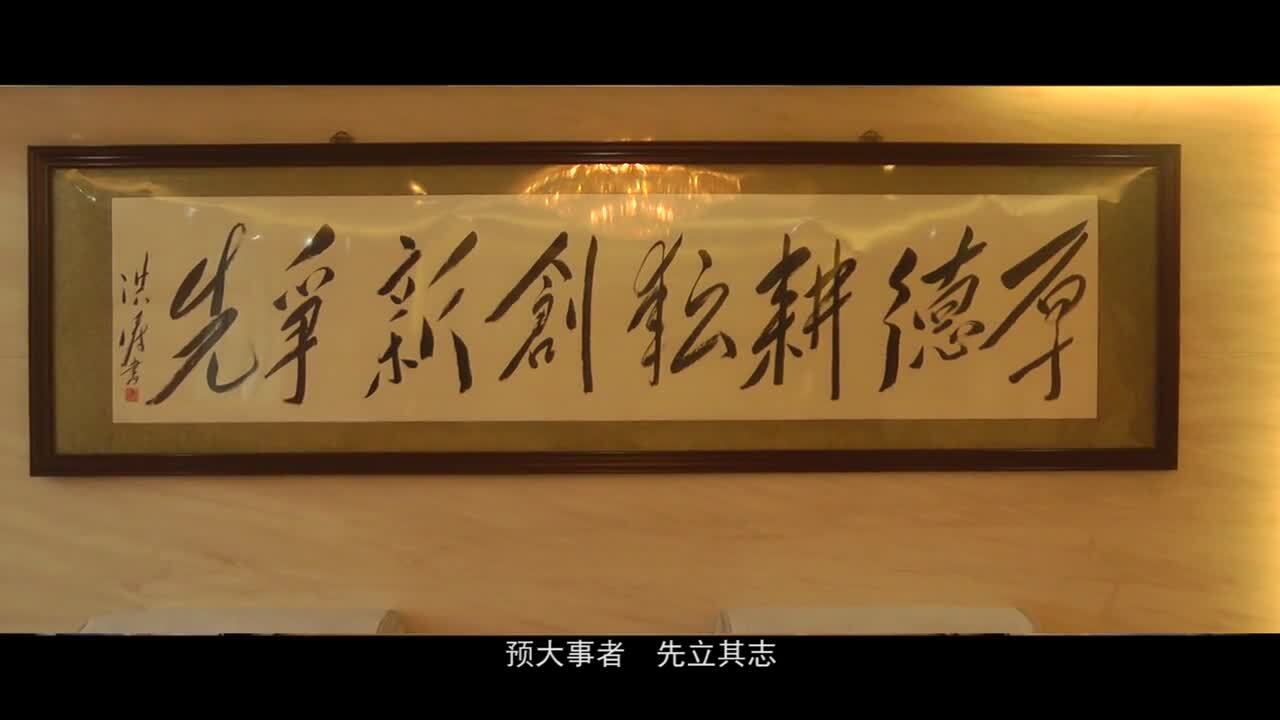 厚德耕耘創新爭先
书
预大事者 先立其志